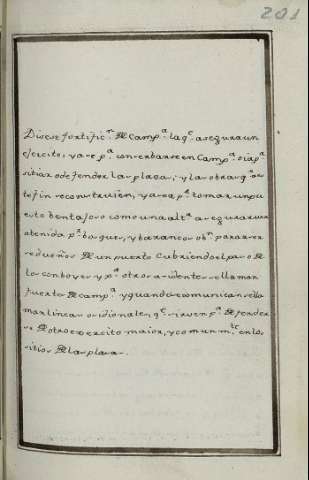 201
Disese fortific.ⁿ de Camp.ª la q.ᵉ asegura un
ejercito, ya se p.ª conserbarse en Camp.ª o sia p.ª
sitiar o defender la plaza, y las obras q.ᵉ
este fin se construien, ya sea p.ª tomar un pu
esto bentajoso como una alt.ª asegurar una
abenida p.ʳ bosques, y baxancos ob.ⁿ para ser
se dueños de un puerto Cubriendo el paso de
los conboyes y p.ª otros asidentes se llaman
fuertes de camp.ª y quando se comunican se lla
man lineas ordionales q.ᵉ sirven p.ª defender
se de otro exercito maior, y comunm.ᵗᵉ en los
sitios de las plasas.